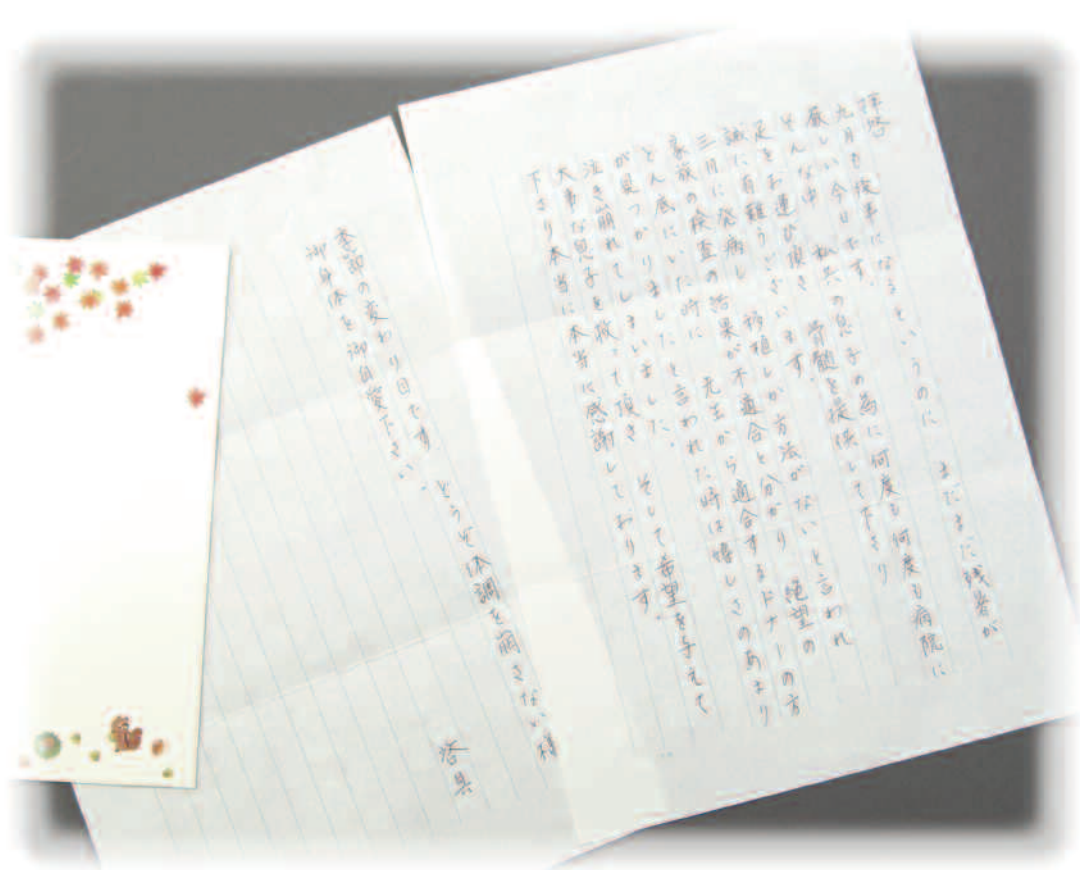 拝啓
九月も後半になるというのに まだまだ残暑が
厳しい今日です。
そんな中 私共の息子の為に何度も何度も病院に
足をお運び頂き 骨髄を提供して下さり
誠に有難うございます。
三月に発病し 移植しか方法がないと言われ
家族の検査の結果が不適合と分かり 絶望の
どん底にいた時に 先生から適合するドナーの方
が見つかりましたと言われた時は嬉しさのあまり
泣き崩れてしまいました。
大事な息子を救って頂き そして希望を与えて
下さり本当に本当に感謝しております。
季節の変わり目です。どうぞ体調を崩さない様
御身体を御自愛下さい。
啓具